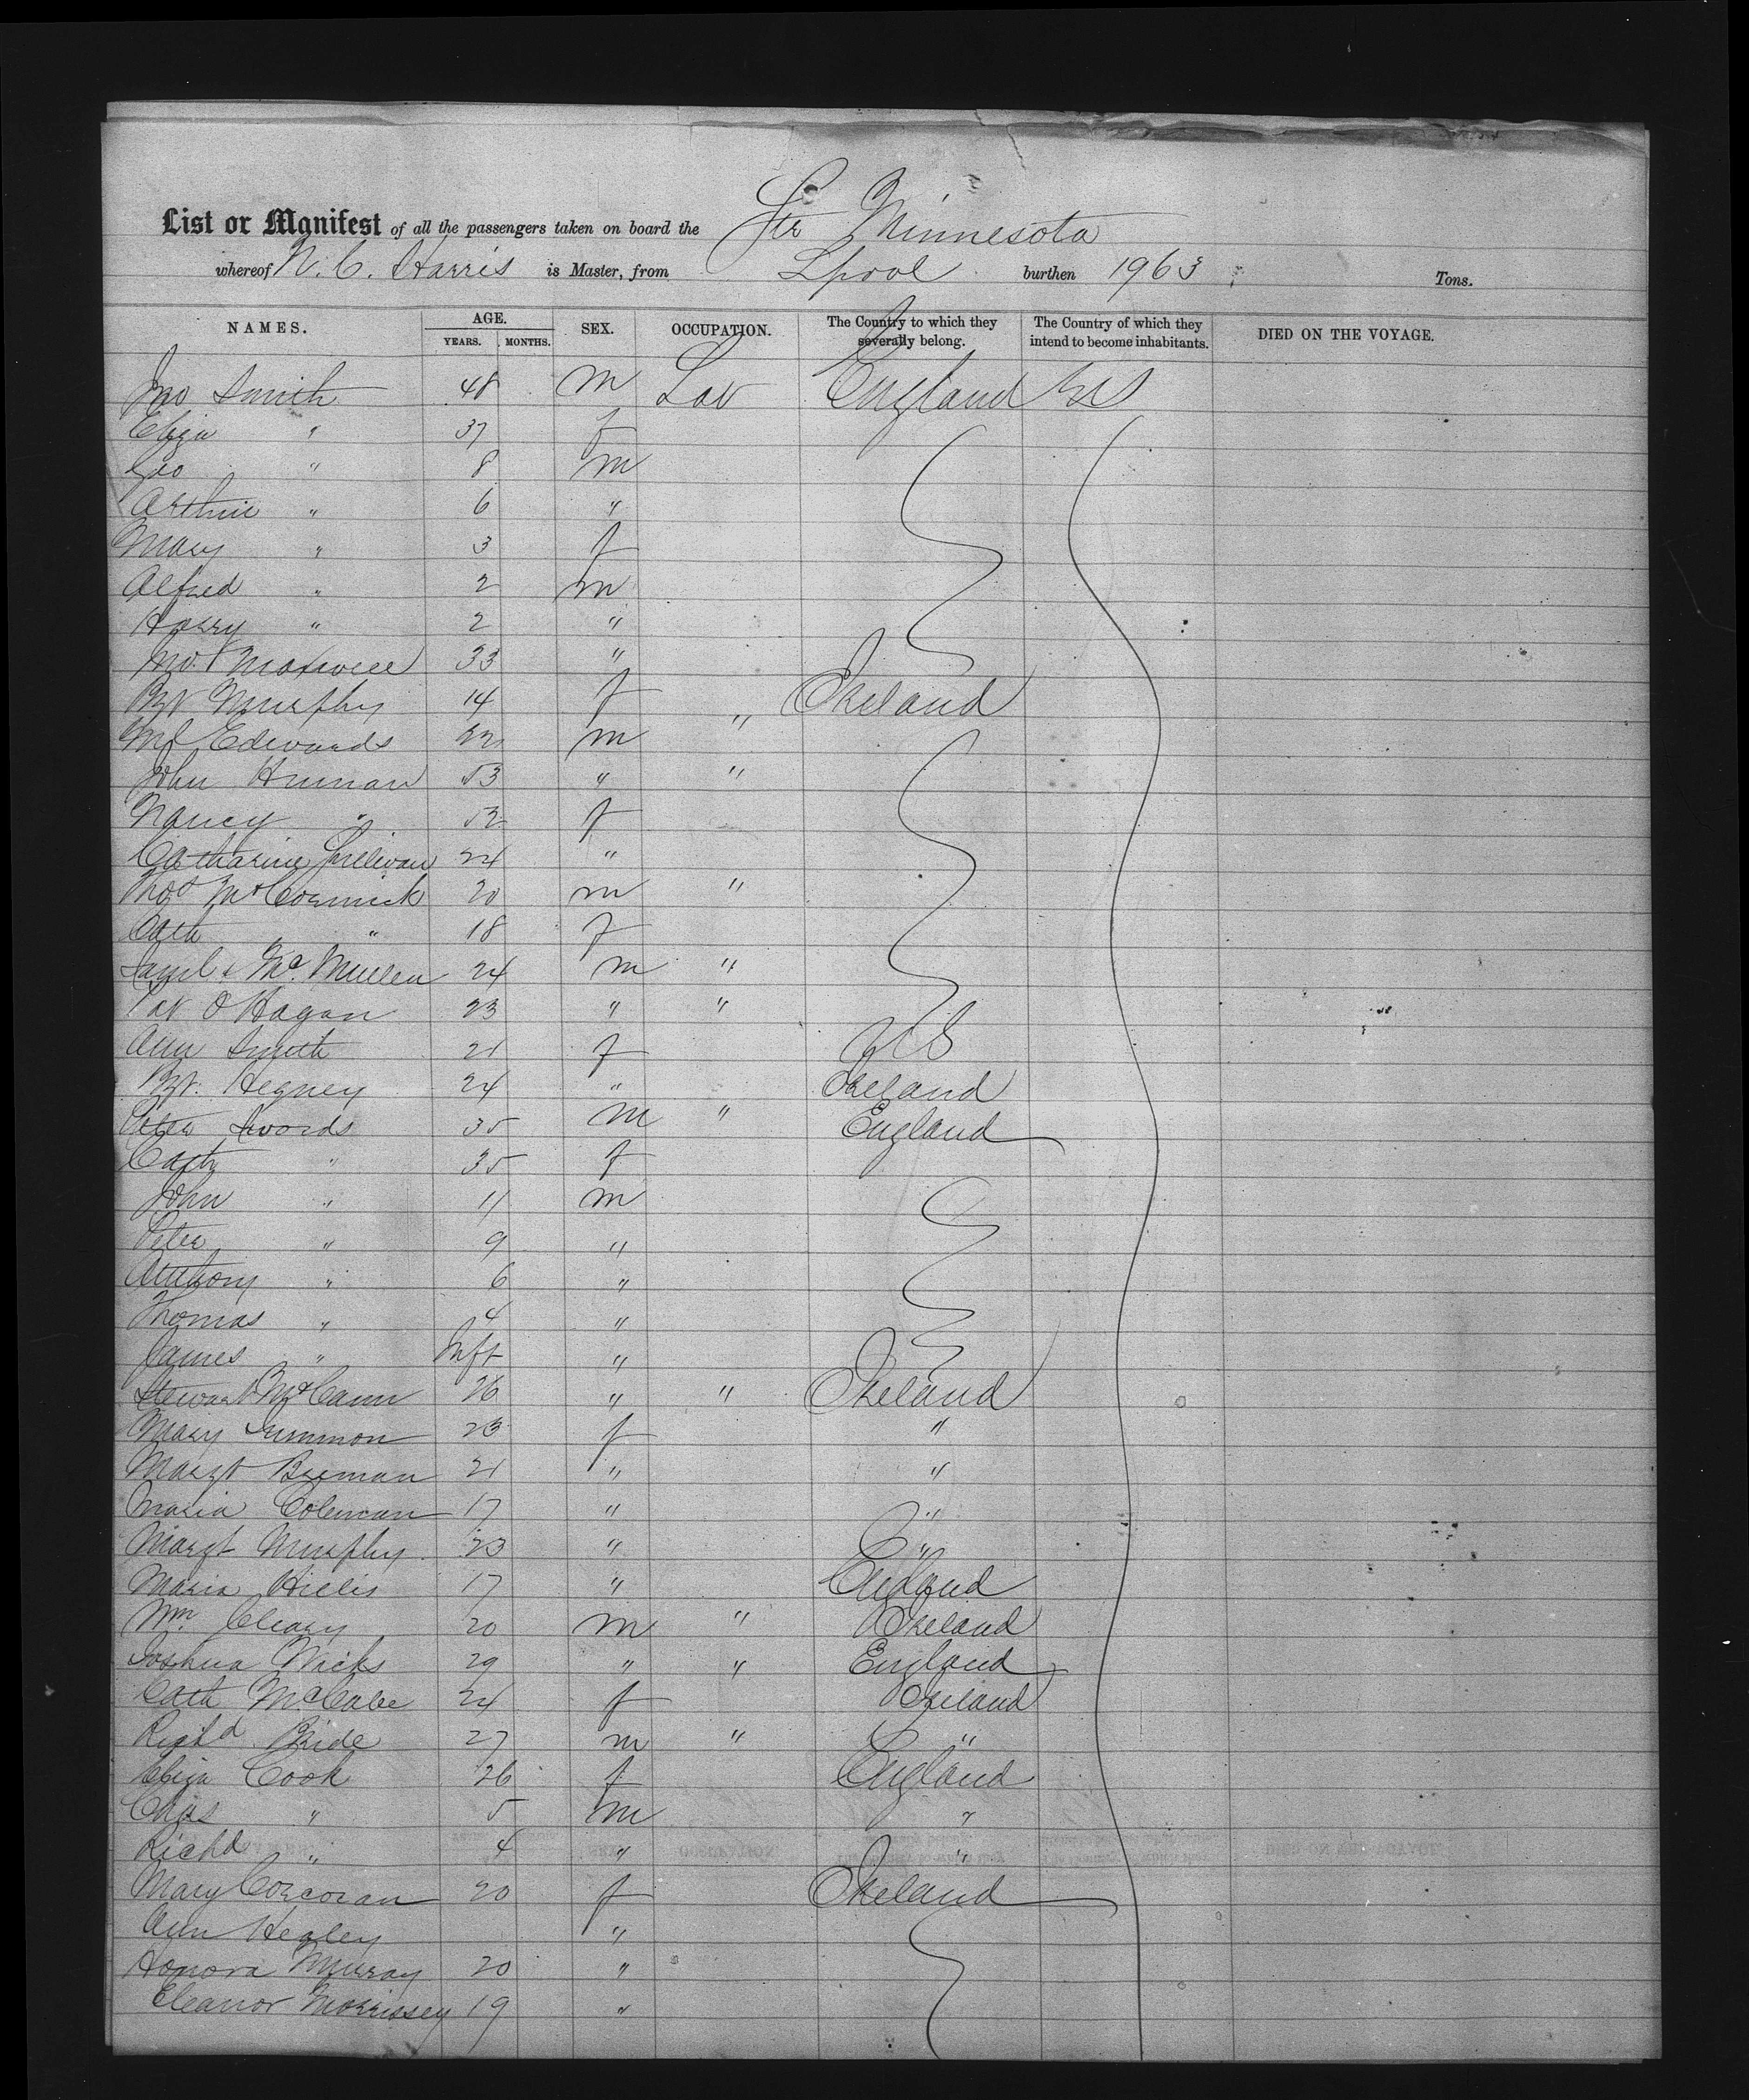 List or Manifest of all the passengers taken on board the Str Minnesota
whereof N. C. Harris is Master, from Lpool burthen 1963 Tons.
NAMES. AGE. YEARS. MONTHS. SEX. OCCUPATION. The Country to which they severally belong. The Country of which they intend to become inhabitants. DIED ON THE VOYAGE.
Jno Smith 48 m Lab England US
Eliza " 37 f
Geo " 8 m
Arthur " 6 "
Mary " 3 f
Alfred " 2 m
Harry " 2 "
Jno Maxwell 33 "
Bgt Murphy 14 f " Ireland
Ml Edwards 22 m
John 53 " "
Nancy " 52 f
Catharine Sullivan 24 "
Thos McCormick 20 m "
Cath " 18 f
Saml McMullen 24 m "
Pat O Hagan 23 " "
Ann Smith 21 f US
Bgt. Hegney 24 " Ireland
Peter Swords 35 m " England
Cath " 35 f
John " 11 m
Peter " 9 "
Anthony " 6 "
Thomas " 4 "
James " Inft "
Stewart McCann 26 " " Ireland
Mary 23 f "
Margt 21 " "
Maria Coleman 17 " "
Margt Murphy 23 " "
Maria Hillis 17 " England
Wm. Cleary 20 m " Ireland
Joshua Wicks 29 " " England
Cath McCabe 24 f Ireland
Richd Bride 27 m " "
Eliza Cook 26 f England
Chas " 5 m "
Richd " 4 " "
Mary Corcoran 20 f Ireland
Ann Hegley "
Honora Murray 20 "
Eleanor Morrissey 19 "